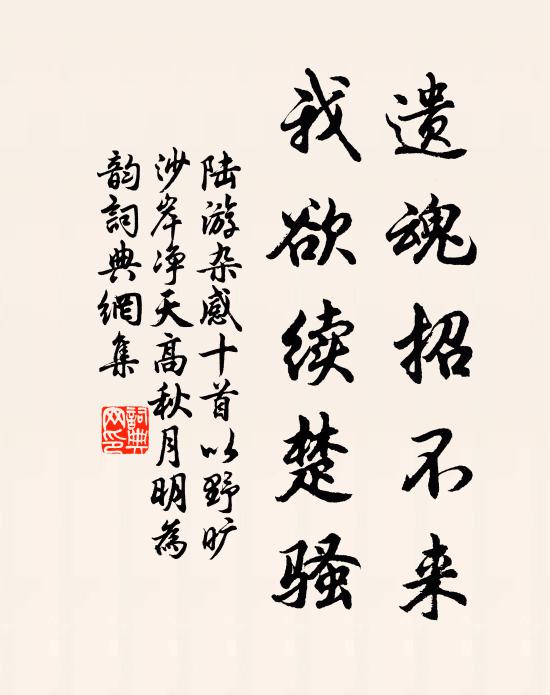 遗魂招不来
我欲续楚骚
陆游杂感十首以野旷
沙岸净天高秋月明為
韵詞典網集
詞典網印